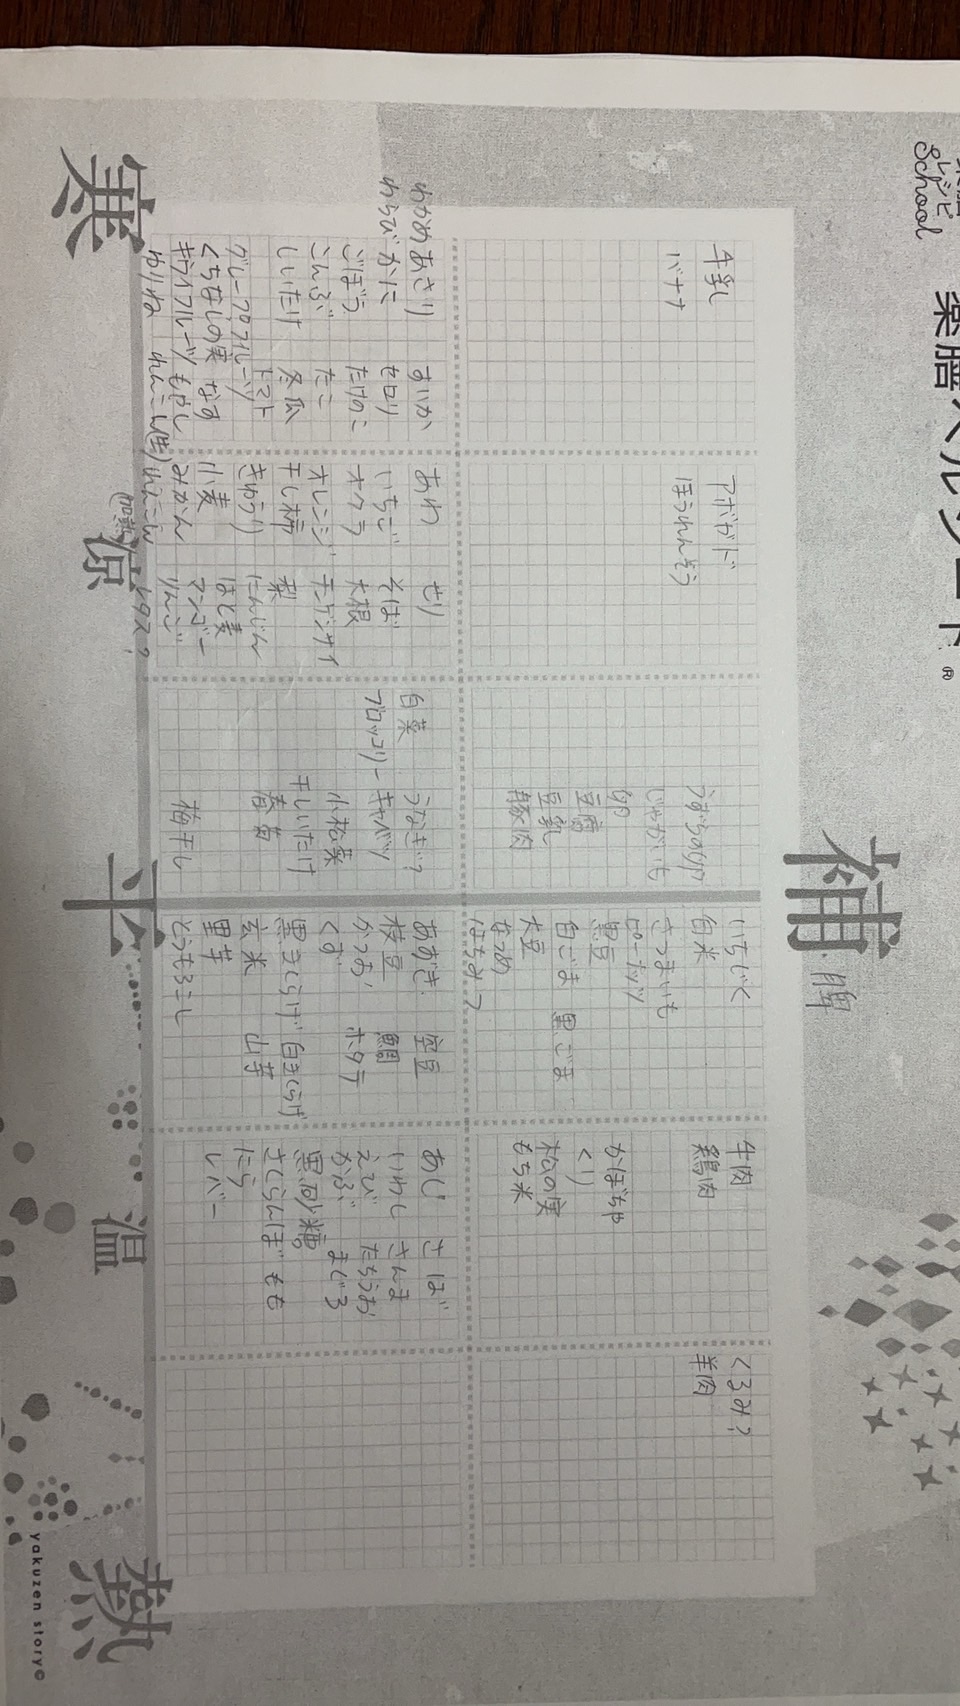 レシピ
School
薬膳
®
補
・脾
牛乳
バナナ
アボガド
ほうれんそう
じゃがいも
卵
豆腐
豆乳
豚肉
いちじく
白米
さつまいも
黒豆
白ごま 黒ごま
大豆
なつめ
はちみつ
牛肉
鶏肉
かぼちゃ
くり
松の実
もち米
くるみ?
羊肉
わかめ あさり すいか
わらび かに セロリ
ごぼう たけのこ
こんぶ たこ
しいたけ 冬瓜
トマト
グレープフルーツ
くちなしの実 なす
キウイフルーツ もやし
ゆりね れんこん(生)
あわ せり
いちご そば
オクラ 大根
オレンジ チンゲンサイ
干し柿 梨
きゅうり にんじん
小麦 はと麦
みかん マンゴー
れんこん(加熱) りんご
レタス?
白菜 うなぎ?
ブロッコリー キャベツ
小松菜
干しいたけ
春菊
梅干し
あずき 空豆
枝豆
かつお ホタテ
くず
黒きくらげ 白きくらげ
玄米 山芋
里芋
とうもろこし
あじ さば
いわし さんま
えび たちうお
かぶ まぐろ
黒砂糖
さくらんぼ もも
たら
レバー
寒
涼
平
温
熱
yakuzen story©